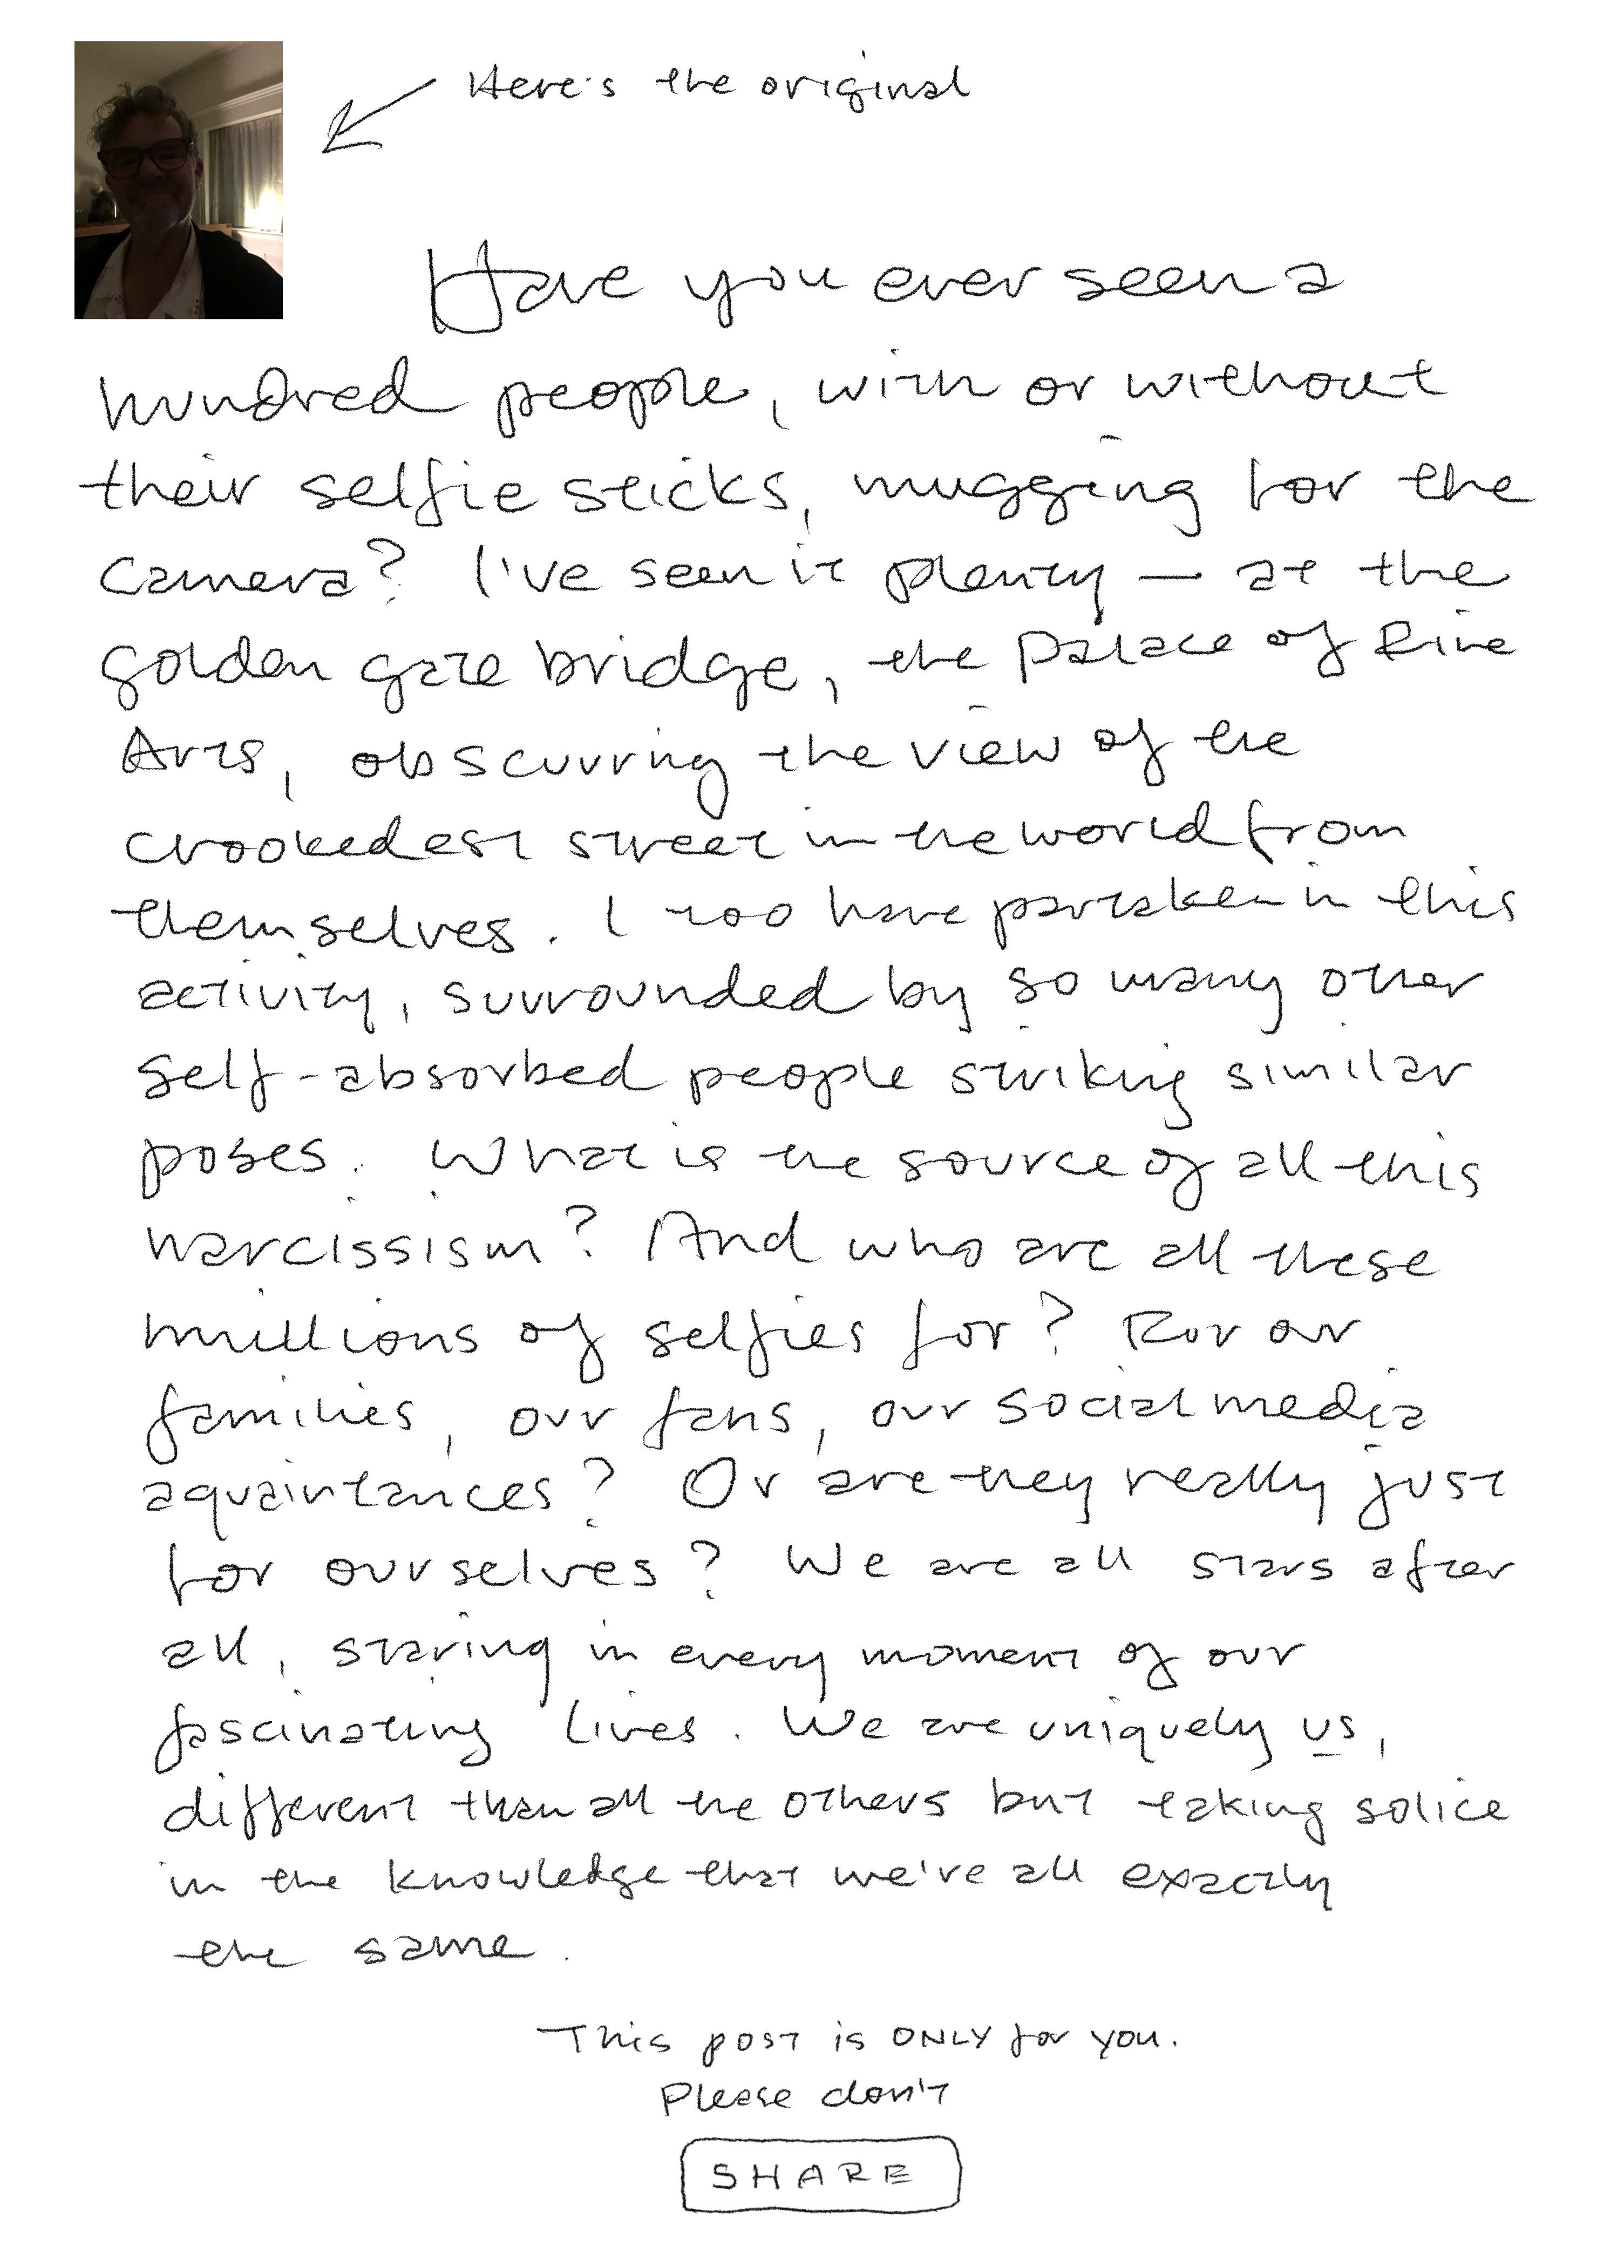 Here's the original
Have you ever seen a
hundred people, with or without
their selfie sticks, mugging for the
camera? I've seen it plenty — at the
golden gate bridge, the Palace of Fine
Arts, obscurring the view of the
crookedest street in the world from
themselves. I too have partaken in this
activity, surrounded by so many other
self-absorbed people striking similar
poses. What is the source of all this
narcissism? And who are all these
millions of selfies for? For our
families, our fans, our social media
aquaintances? Or are they really just
for ourselves? We are all stars after
all, staring in every moment of our
fascinating lives. We are uniquely us,
different than all the others but taking solice
in the knowledge that we've all exactly
the same.
This post is ONLY for you.
Please don't
SHARE